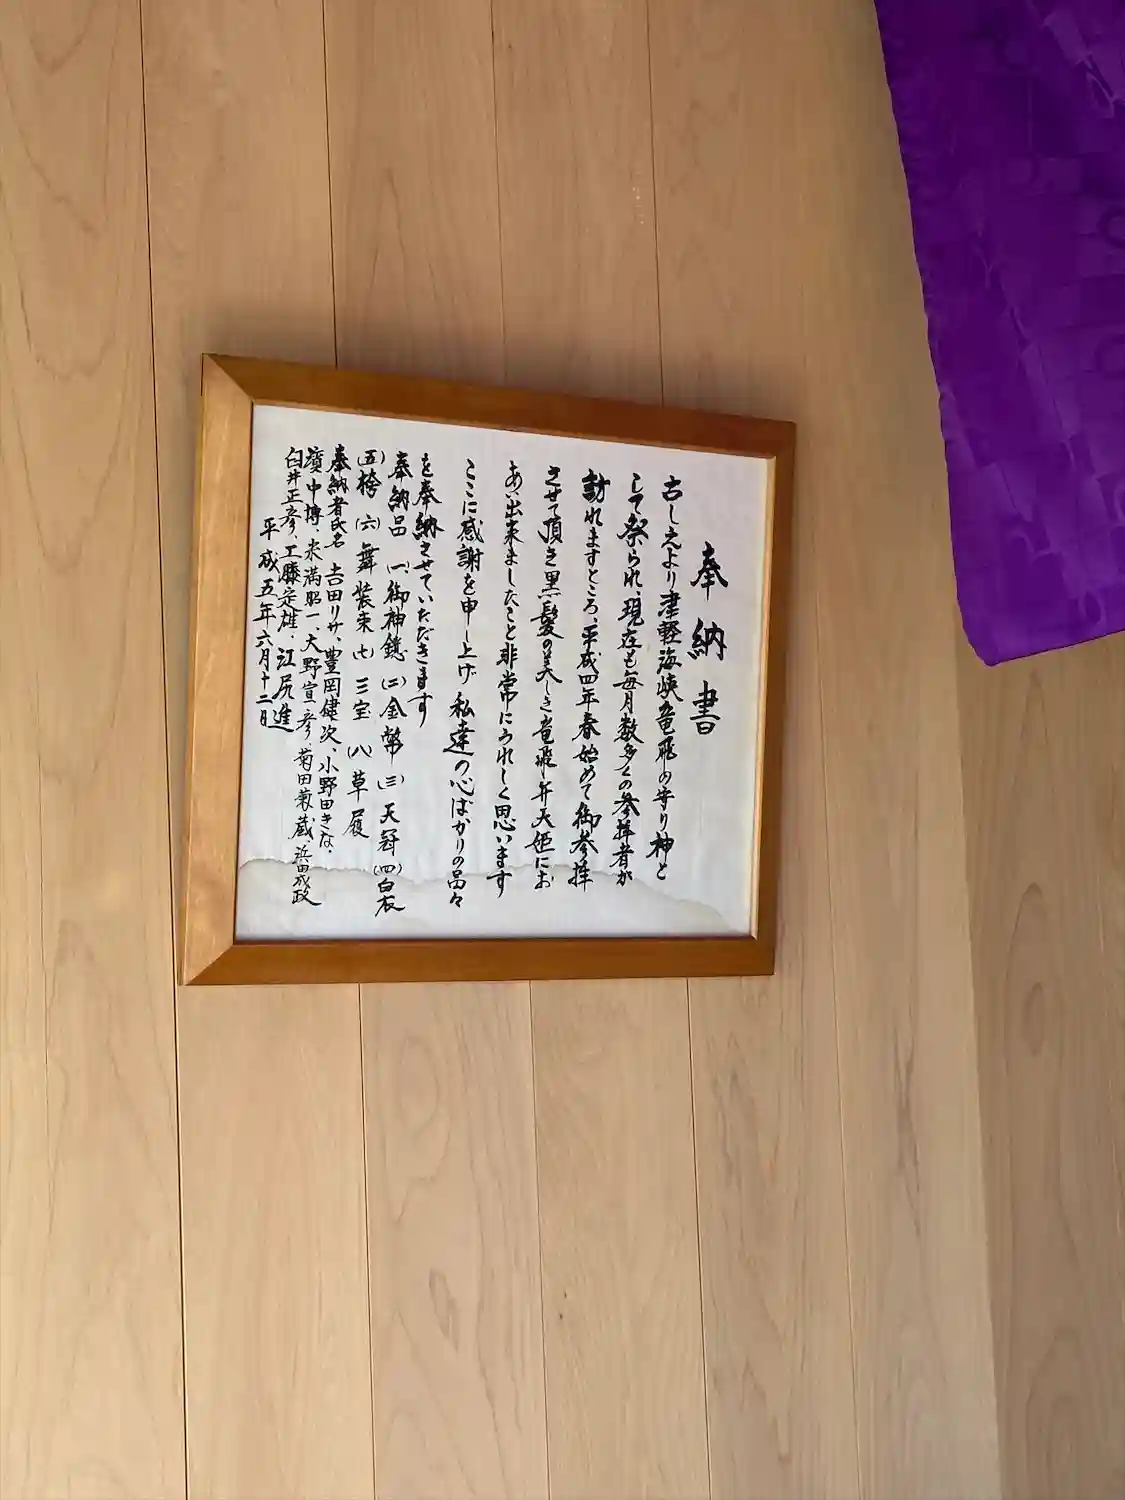 奉納書
古しえより津軽海峡竜飛の守り神と
して祭られ、現在も毎月数多くの参拝者が
訪れますところ、平成四年春始めて御参拝
させて頂き黒髪の美しき竜飛弁天姫にお
あい出来ましたこと非常にうれしく思います
ここに感謝を申し上げ 私達の心ばかりの品々
を奉納させていただきます
奉納品 (一)御神鏡 (二)金幣 (三)天冠 (四)白衣
(五)袴 (六)舞装束 (七)三宝 (八)草履
奉納者氏名 吉田リサ、豊岡健次、小野田きな、
濱中博、米満昭一、大野宣彦、菊田菊蔵 浜田成政
臼井正彦、工藤定雄、江尻進
平成五年六月十二日